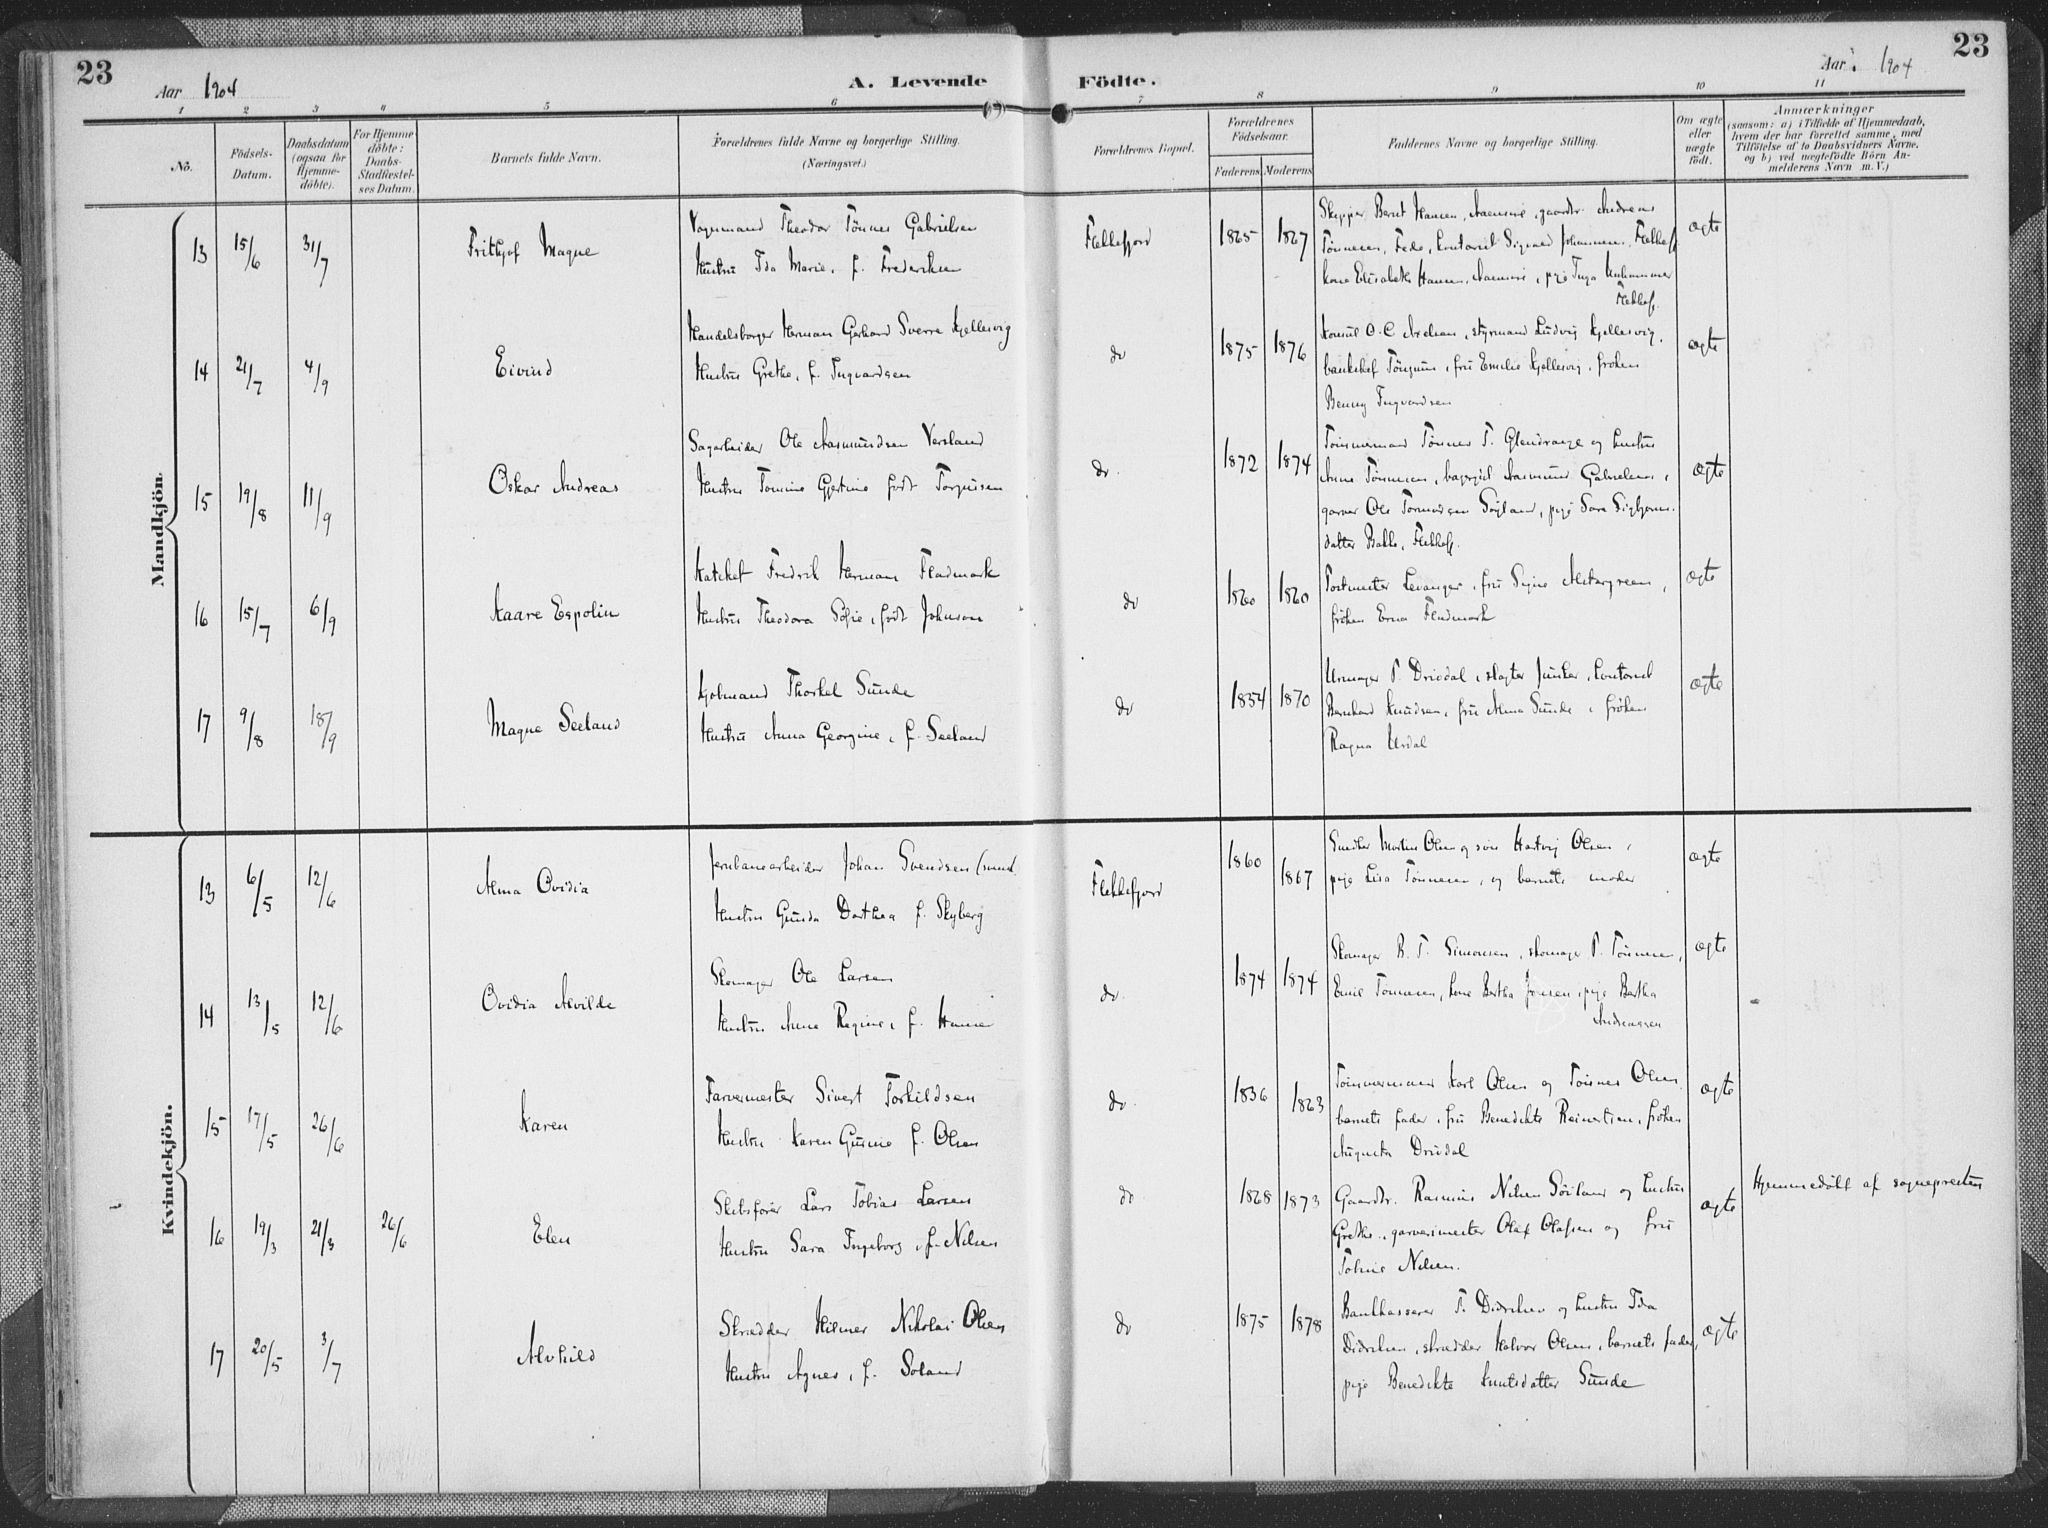 23
Aar 1904
A. Levende Födte.
Aar 1904
23
1 2 3 4 5 6 7 8 9 10 11
No.
Födsels-Datum.
Daabsdatum (ogsaa for Hjemme-döbte).
For Hjemme döbte: Daabs-Stadfæstel-ses Datum.
Barnets fulde Navn.
Forældrenes fulde Navne og borgerlige Stilling. (Næringsvei.)
Forældrenes Bopæl.
Forældrenes Födselsaar.
Faderens Moderens
Faddernes Navne og borgerlige Stilling.
Om ægte eller uægte født.
Anmærkninger
(saasom: a) i Tilfælde af Hjemmedaab, hvem der har forrettet samme, med Tilföielse af to Daabsvidners Navne. og b) ved uægtefödte Börn An-melderens Navn m.V.)
Mandkjön.
13 15/6 31/7 Frithjof Magne
Vognmand Theodor Tönnes Gabrielsen
Hustru Ida Marie, f. Frederiksen
Flekkefjord 1865 1867
Skipper Bernt Hansen, gaardbr. Andreas
Tönnesen, Fede, kontorist Sigvard Johannesen, Flekkefj.
kone Elisabeth Hansen, pige Inga
Flekkefj.
ægte
14 21/7 4/9 Eivind
Handelsborger Herman Gerhard Sverre Kjellesvig
Hustru Grethe, f. Ingvardsen
do 1875 1876
Konsul O. C. Axelsen, styrmand Ludvig Kjellesvig,
bankchef fru Emilie Kjellesvig, fröken
Benny Ingvardsen
ægte
15 19/8 11/9 Oskar Andreas
Sagarbeider Ole Aasmundsen Versland
Hustru Tomine Gjertine født Torgusen
do. 1872 1874
Tömmermand Tönnes T. Glendrange og hustru
Anne Tönnesen, Aasmund Gabrielsen,
garver Ole Tormodsen pige Sara
datter Bakke, Flekkefj.
ægte
16 15/7 6/9 Kaare Espolin
Fredrik Herman Fladmark
Hustru Theodora Sofie, født Johnson
do 1860 1860
Postmester Levanger, fru Signe
fröken Erna Fladmark
ægte
17 9/8 18/9 Magne Seeland
Kjøbmand Thorkel Sunde
Hustru Anna Georgine, f. Seeland
do 1854 1870
Urmager P. Drivdal, slagter Junker, kontorist
Bernhard Knudsen, fru Alma Sunde, fröken
Ragna Urdal
ægte
Kvindekjön.
13 6/5 12/6 Alma Ovidia
Jernbanearbeider Johan Svendsen
Hustru Gunda Dorthea f. Skyberg
Flekkefjord 1860 1867
Martin Olsen og sön Hartvig Olsen,
pige Lisa Tönnesen, og barnets moder
ægte
14 13/5 12/6 Ovidia Alvilde
Skomager Ole Larsen
Hustru Anna Regine, f. Hansen
do. 1874 1874
Skomager B. T. Simonsen, skomager P. Tönnesen,
Emil Tönnesen, kone Bertha Jensen, pige Bertha
Andreassen
ægte
15 17/5 26/6 Karen
Farvermester Sivert Torkildsen
Hustru Karen Gurine f. Olsen
do 1836 1863
Tömmermand Karl Olsen og Tönnes Olsen,
barnets fader, fru Benedikte Reinertsen, fröken
Augusta Drivdal
ægte
16 19/3 21/3 26/6 Elen
Skibsförer Lars Tobias Larsen
Hustru Sara Ingeborg, f. Nilsen
do 1868 1873
Gaardbr. Rasmus Nilsen og hustru
Grethe, garverimester Olaf Olafsen og fru
Tobine Nilsen.
ægte
Hjemmedöbt af sognepresten
17 20/5 3/7 Alvhild
Skrædder Hilmer Nikolai Olsen
Hustru Agnes, f. Soland
do 1875 1878
Bankkasserer T. Didriksen og hustru Ida
Didriksen, skrædder Halvor Olsen, barnets fader,
pige Benedikte Knutsdatter Sunde
ægte